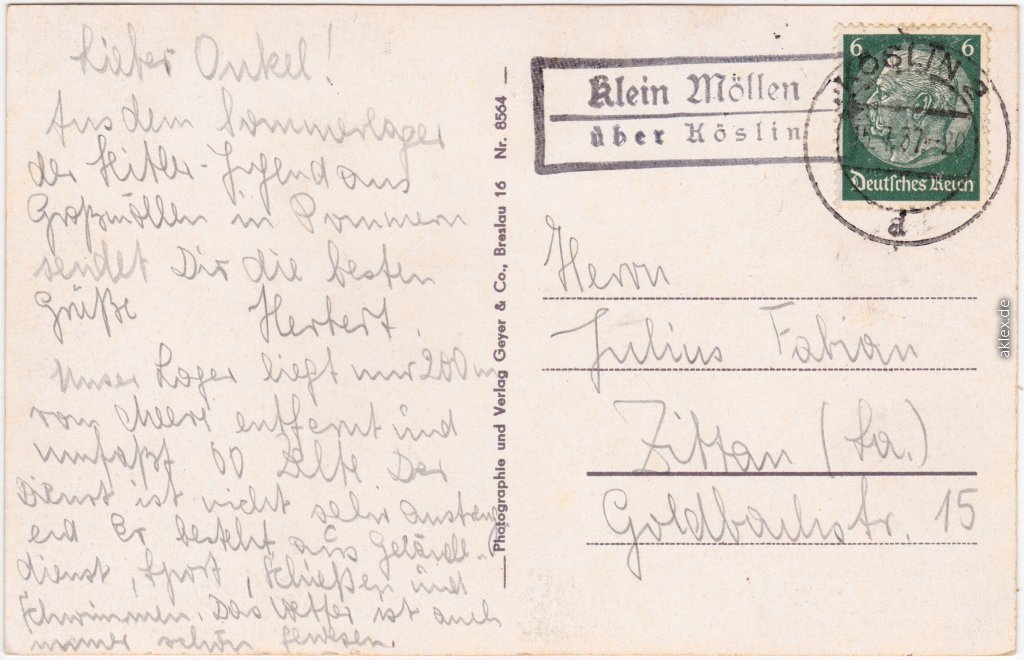 Lieber Onkel!
Aus dem Sommerlager
der Hitler-Jugend aus
Großmöllen in Pommern
sendet Dir die besten
Grüße Herbert.
Unser Lager liegt nur 200 m
vom Meere entfernt und
umfaßt 60 Zelte Der
Dienst ist nicht sehr anstreng
end Er besteht aus Gelände-
dienst, Sport, Schießen und
Schwimmen. Das Wetter ist auch
immer schön gewesen.
Photographie und Verlag Geyer & Co., Breslau 16 Nr. 8564
Klein Möllen
über Köslin
KÖSLIN
d
6 6
Deutsches Reich
Herrn
Julius Fabian
Zittau (Sa.)
Goldbachstr. 15
aklex.de